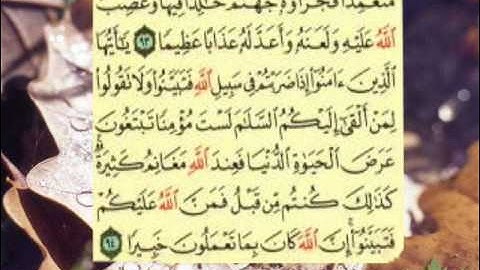 مُّتَعَمِّدًا فَجَزَآؤُهُۥ جَهَنَّمُ خَٰلِدًا فِيهَا وَغَضِبَ
ٱللَّهُ عَلَيْهِ وَلَعَنَهُۥ وَأَعَدَّ لَهُۥ عَذَابًا عَظِيمًا ٩٣ يَٰٓأَيُّهَا
ٱلَّذِينَ ءَامَنُوٓا۟ إِذَا ضَرَبْتُمْ فِى سَبِيلِ ٱللَّهِ فَتَبَيَّنُوا۟ وَلَا تَقُولُوا۟
لِمَنْ أَلْقَىٰٓ إِلَيْكُمُ ٱلسَّلَٰمَ لَسْتَ مُؤْمِنًا تَبْتَغُونَ
عَرَضَ ٱلْحَيَوٰةِ ٱلدُّنْيَا فَعِندَ ٱللَّهِ مَغَانِمُ كَثِيرَةٌ ۚ
كَذَٰلِكَ كُنتُم مِّن قَبْلُ فَمَنَّ ٱللَّهُ عَلَيْكُمْ
فَتَبَيَّنُوٓا۟ ۚ إِنَّ ٱللَّهَ كَانَ بِمَا تَعْمَلُونَ خَبِيرًا ٩٤